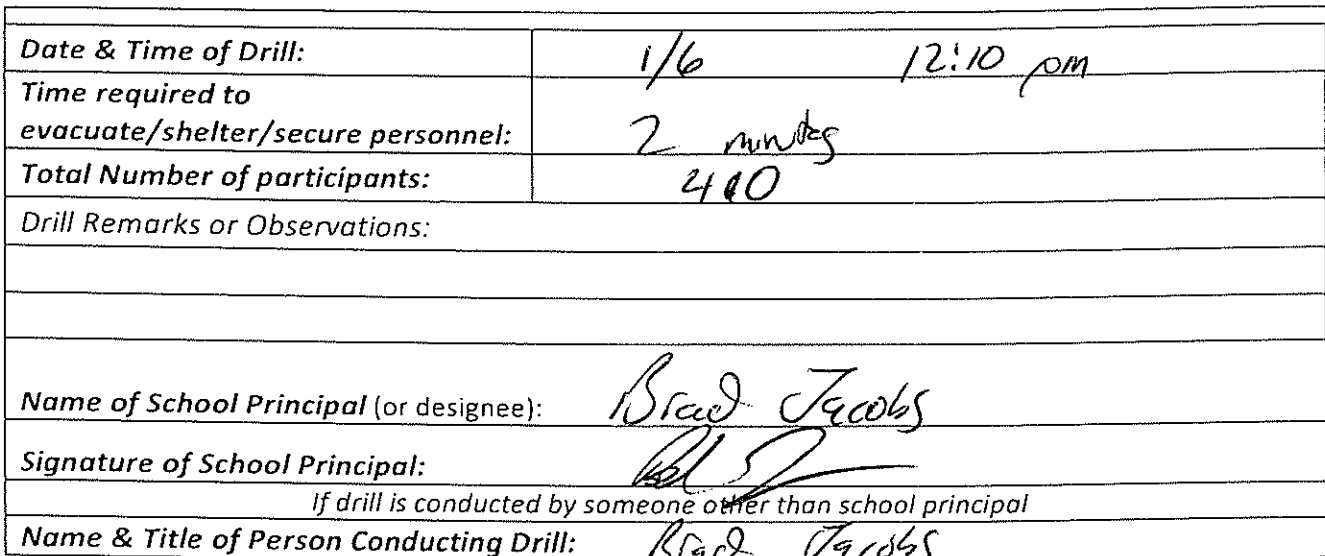 Date & Time of Drill: 1/6 12:10 pm
Time required to
evacuate/shelter/secure personnel: 2 minutes
Total Number of participants:
Drill Remarks or Observations:
Name of School Principal (or designee): Brad Jacobs
Signature of School Principal:
If drill is conducted by someone other than school principal
Name & Title of Person Conducting Drill: Brad Jacobs